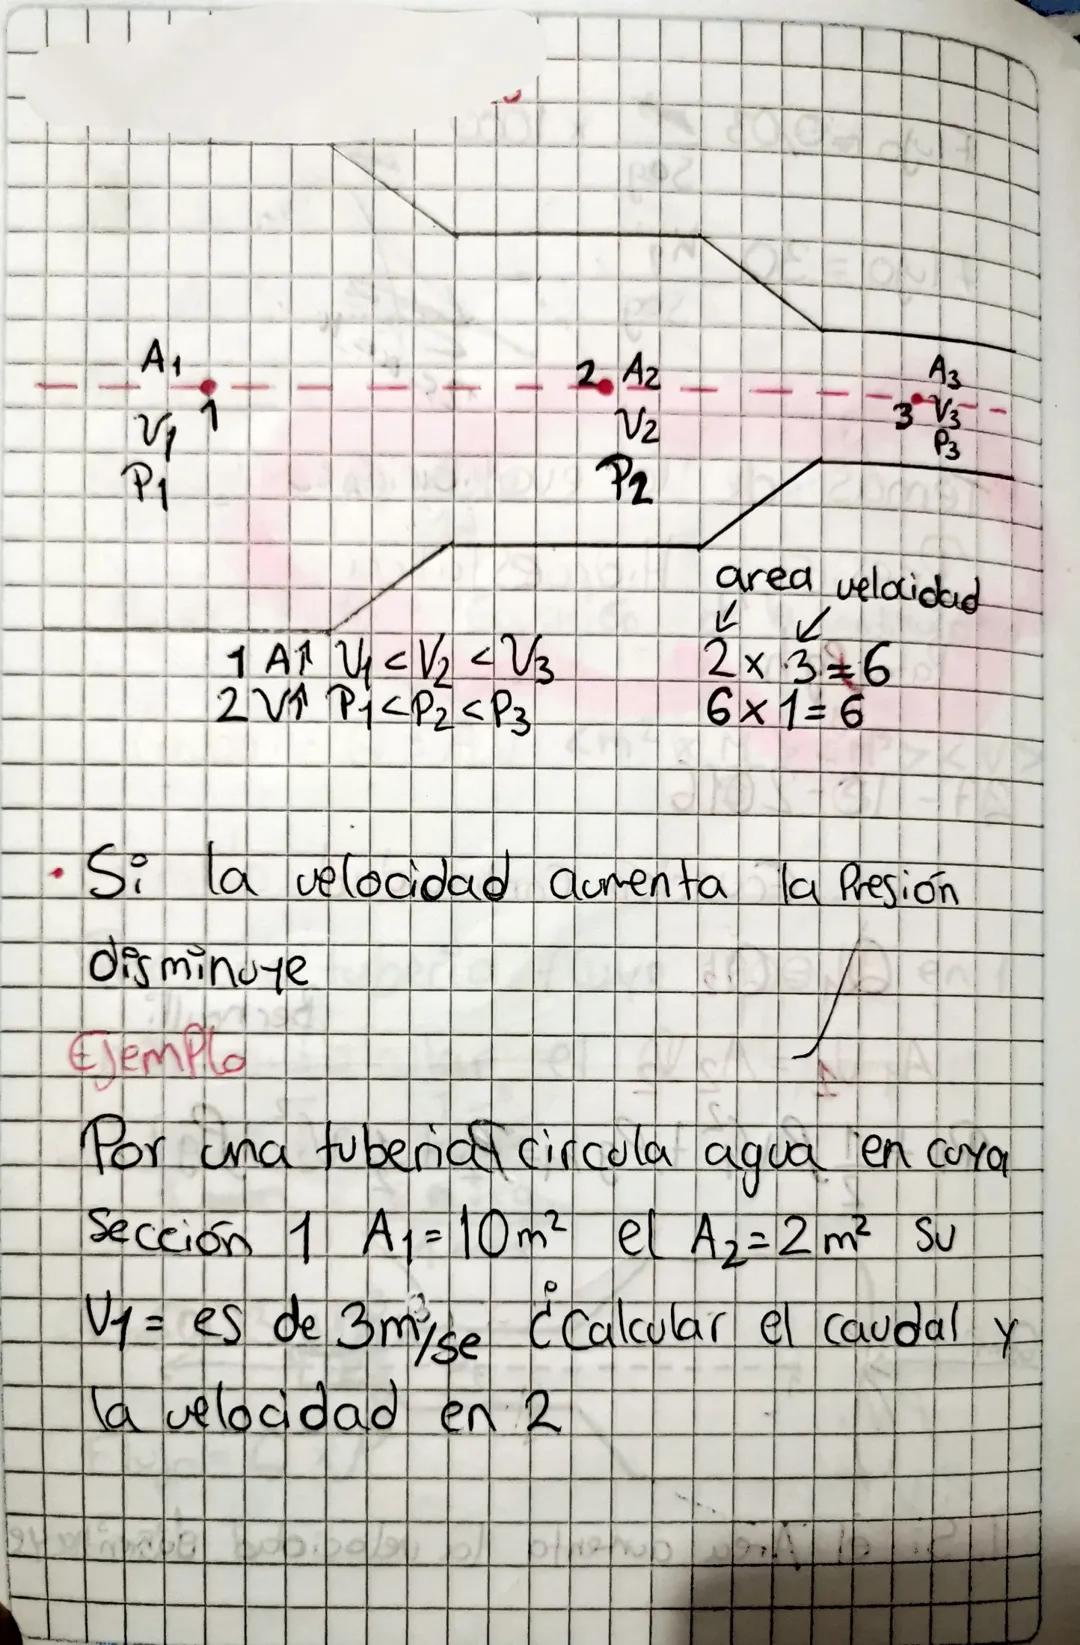 A₁
V₁ 1
P₁
2 A₂
V₂
P₂
A₃
3 V₃
P₃
area velocidad
1 A↑ V₁ < V₂ < V₃
2 V↑ P₁ < P₂ < P₃
2 x 3 = 6
6 x 1 = 6
• Si la velocidad aumenta la Presión
disminuye
Ejemplo
Por una tuberia circula agua en cuya
sección 1 A₁ = 10 m² el A₂ = 2 m² su
V₁ = es de 3 m³/se ¿Calcular el caudal y
la velocidad en 2